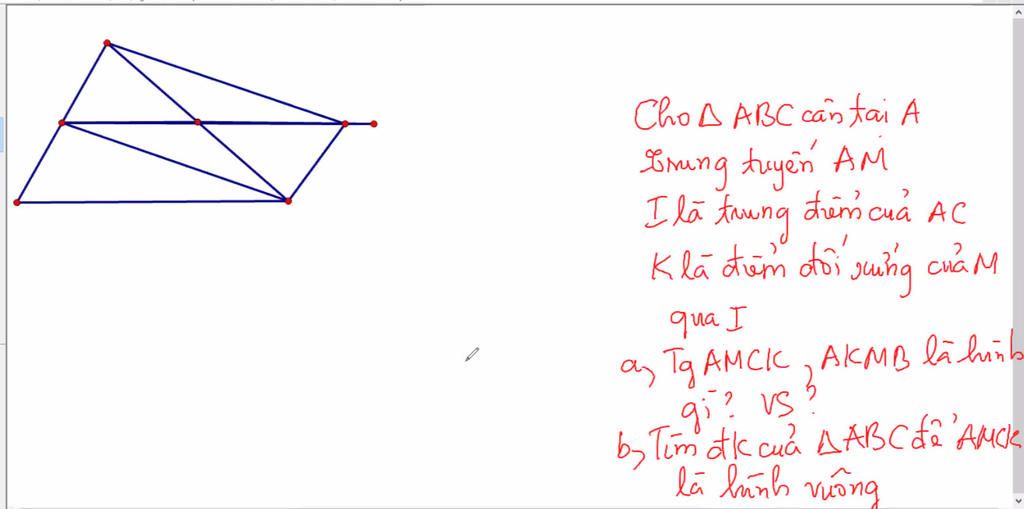 Cho Δ ABC cân tại A
Trung tuyến AM
I là trung điểm của AC
K là điểm đối xứng của M
qua I
a, Tg AMCK, AKMB là hình
gì? VS?
b, Tìm đk của Δ ABC để AMCK
là hình vuông